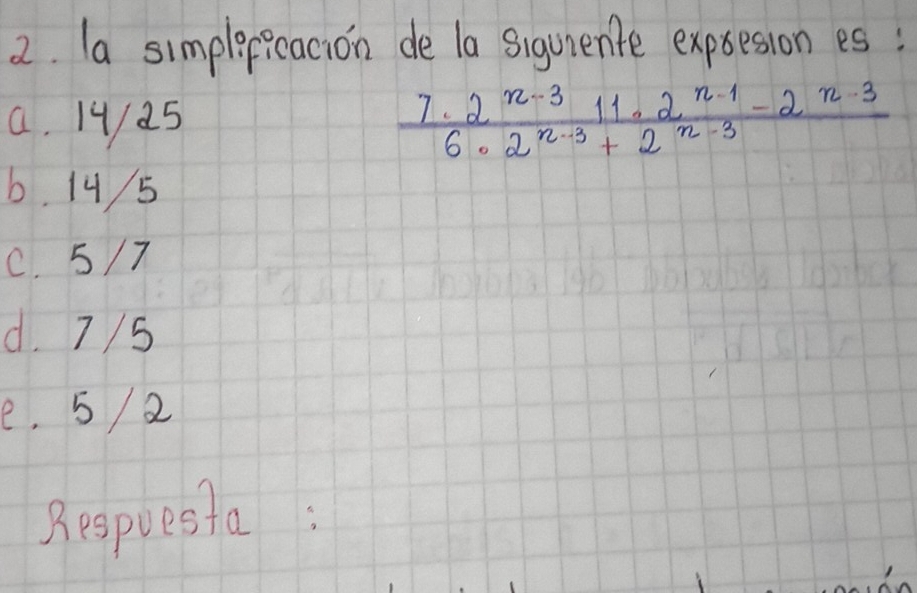 2. la simplificación de la Siguiente expresion es :
a. 14/25
7 . 2^{n-3} 11 . 2^{n-1} - 2^{n-3}
6 . 2^{n-3} + 2^{n-3}
b. 14/5
c. 5/7
d. 7/5
e. 5/2
Respuesta :